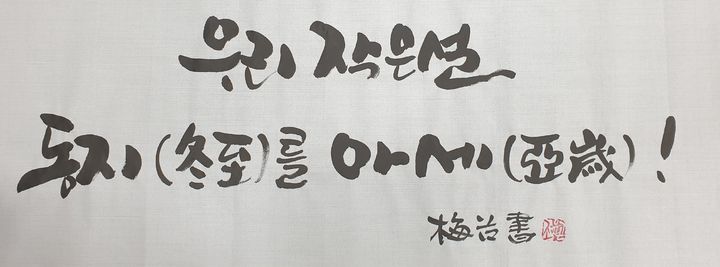 우리 작은설
동지(冬至)를 아세(亞歲)!
梅谷書